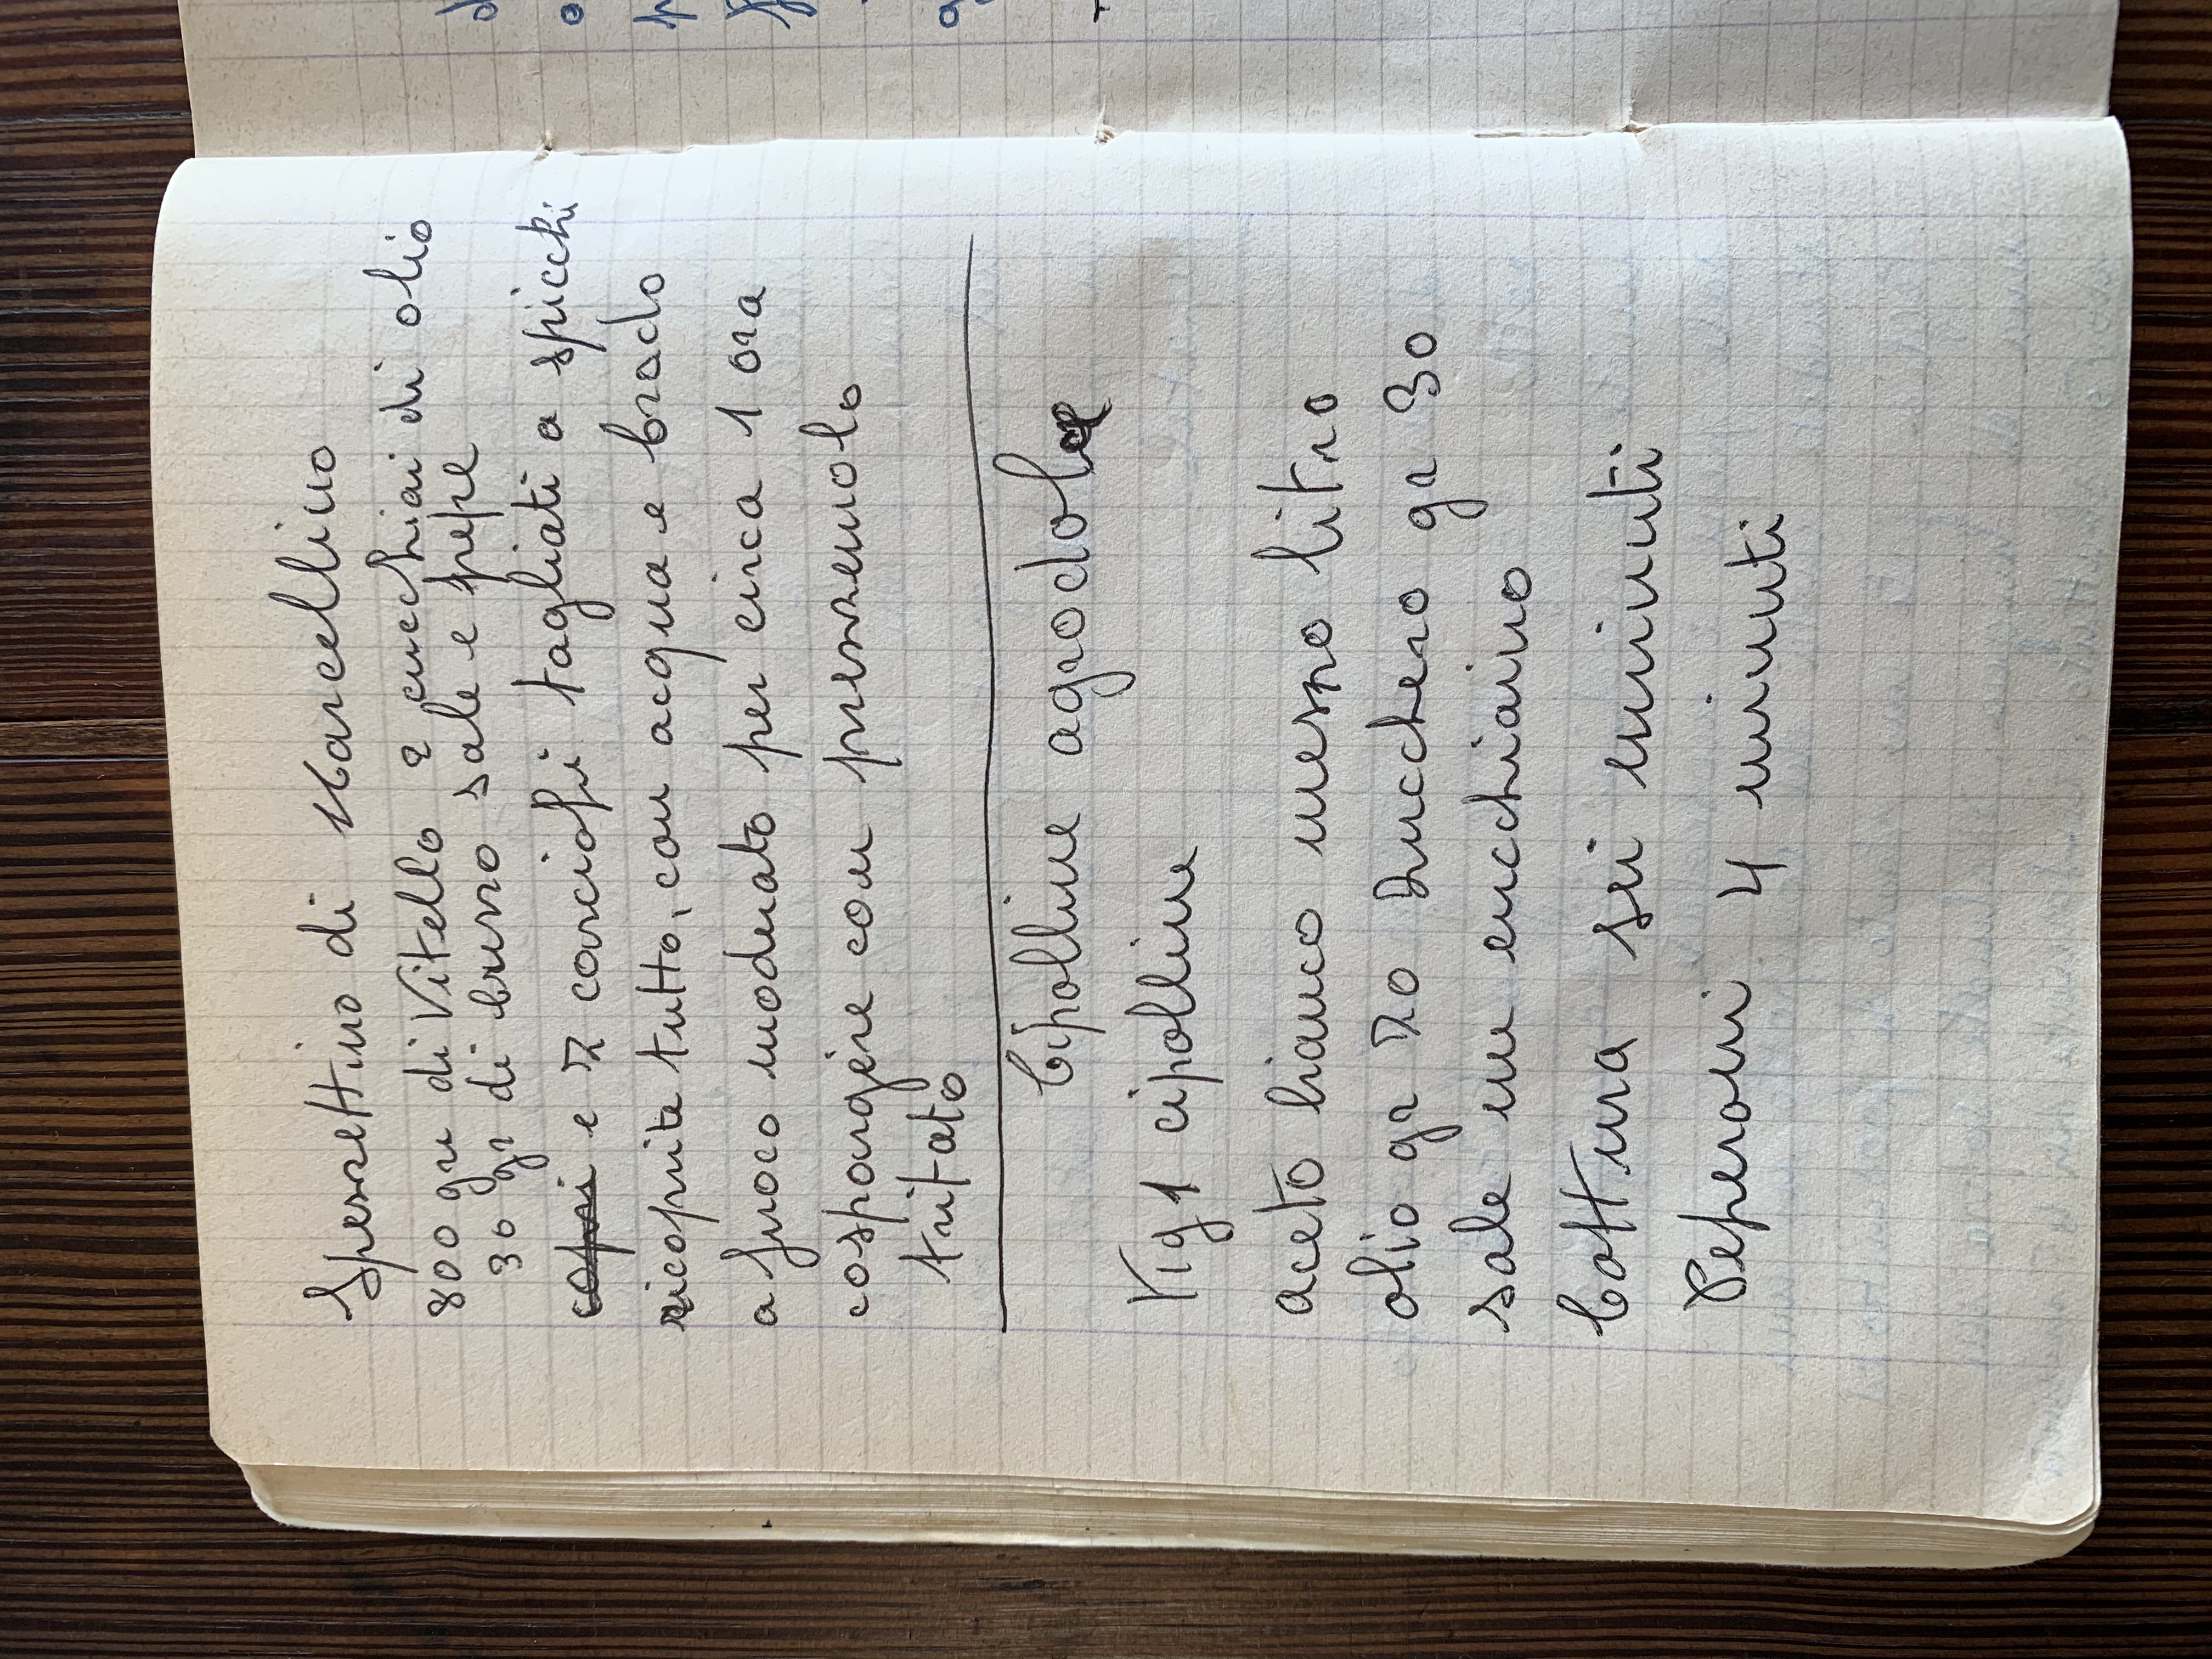 Spezzettino di Marcellino
800 gr di Vitello 2 cucchiai di olio
30 gr di burro sale e pepe
copri e 2 carciofi tagliati a spicchi
ricoprite tutto, con acqua e brado
a fuoco moderato per circa 1 ora
cospargere con prezzemolo
tritato
Cipolline agrodolce
Kg 1 cipolline
aceto bianco mezzo litro
olio gr 20 zucchero gr 30
sale un cucchiaino
Cottura sei minuti
Peperoni 4 minuti